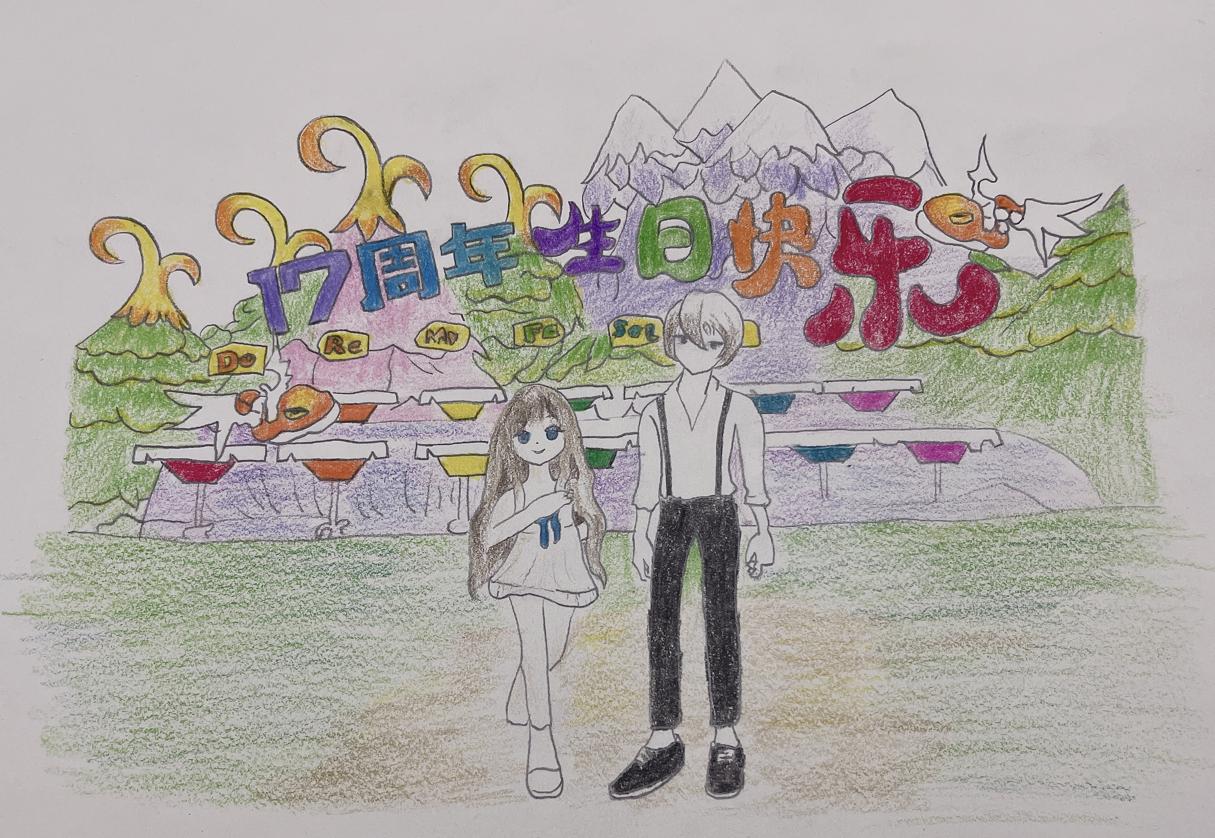 17周年生日快乐
Do Re Mi Fa Sol